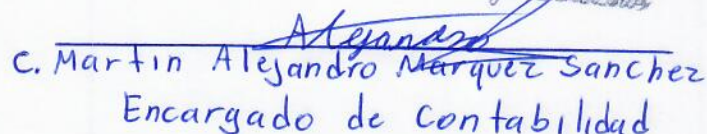 Alejandro
C. Martin Alejandro Marquez Sanchez
Encargado de Contabilidad